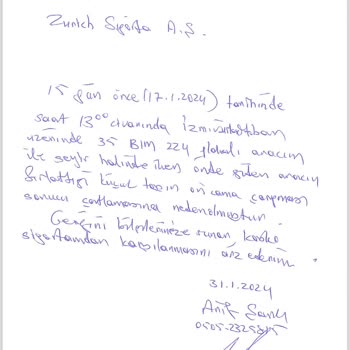 Zurich Sigorta A.Ş.
15 gün önce (17.1.2024) tarihinde
saat 13:00 civarında İzmir
üzerinde 35 BIM 224 plakalı aracım
ile seyir halinde iken önde giden aracın
fırlattığı küçük taşın ön cama çarpması
sonucu çatlamasına neden olmuştur.
Gereğini bilgilerinize sunar kasko
sigortamdan karşılanmasını arz ederim.
31.1.2024
Arif